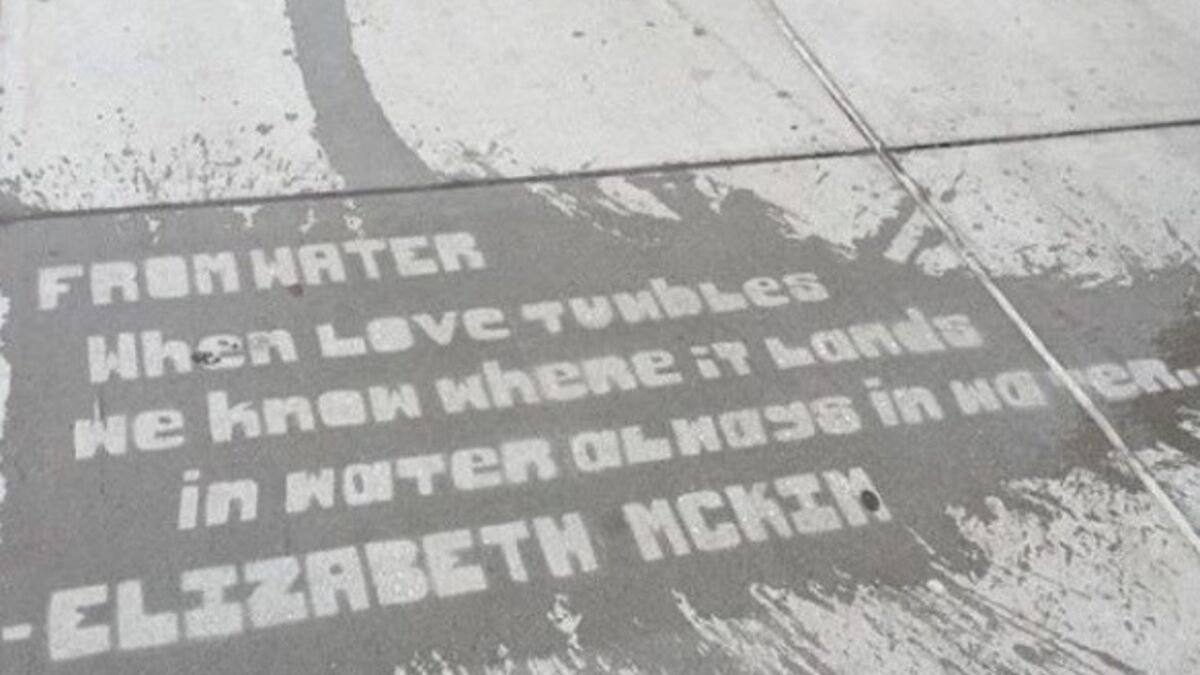 FROM WATER
When Love TUMbLes
we know where iT Lands
in waTer aLways in waTer.
-ELIZABETH MCKIM